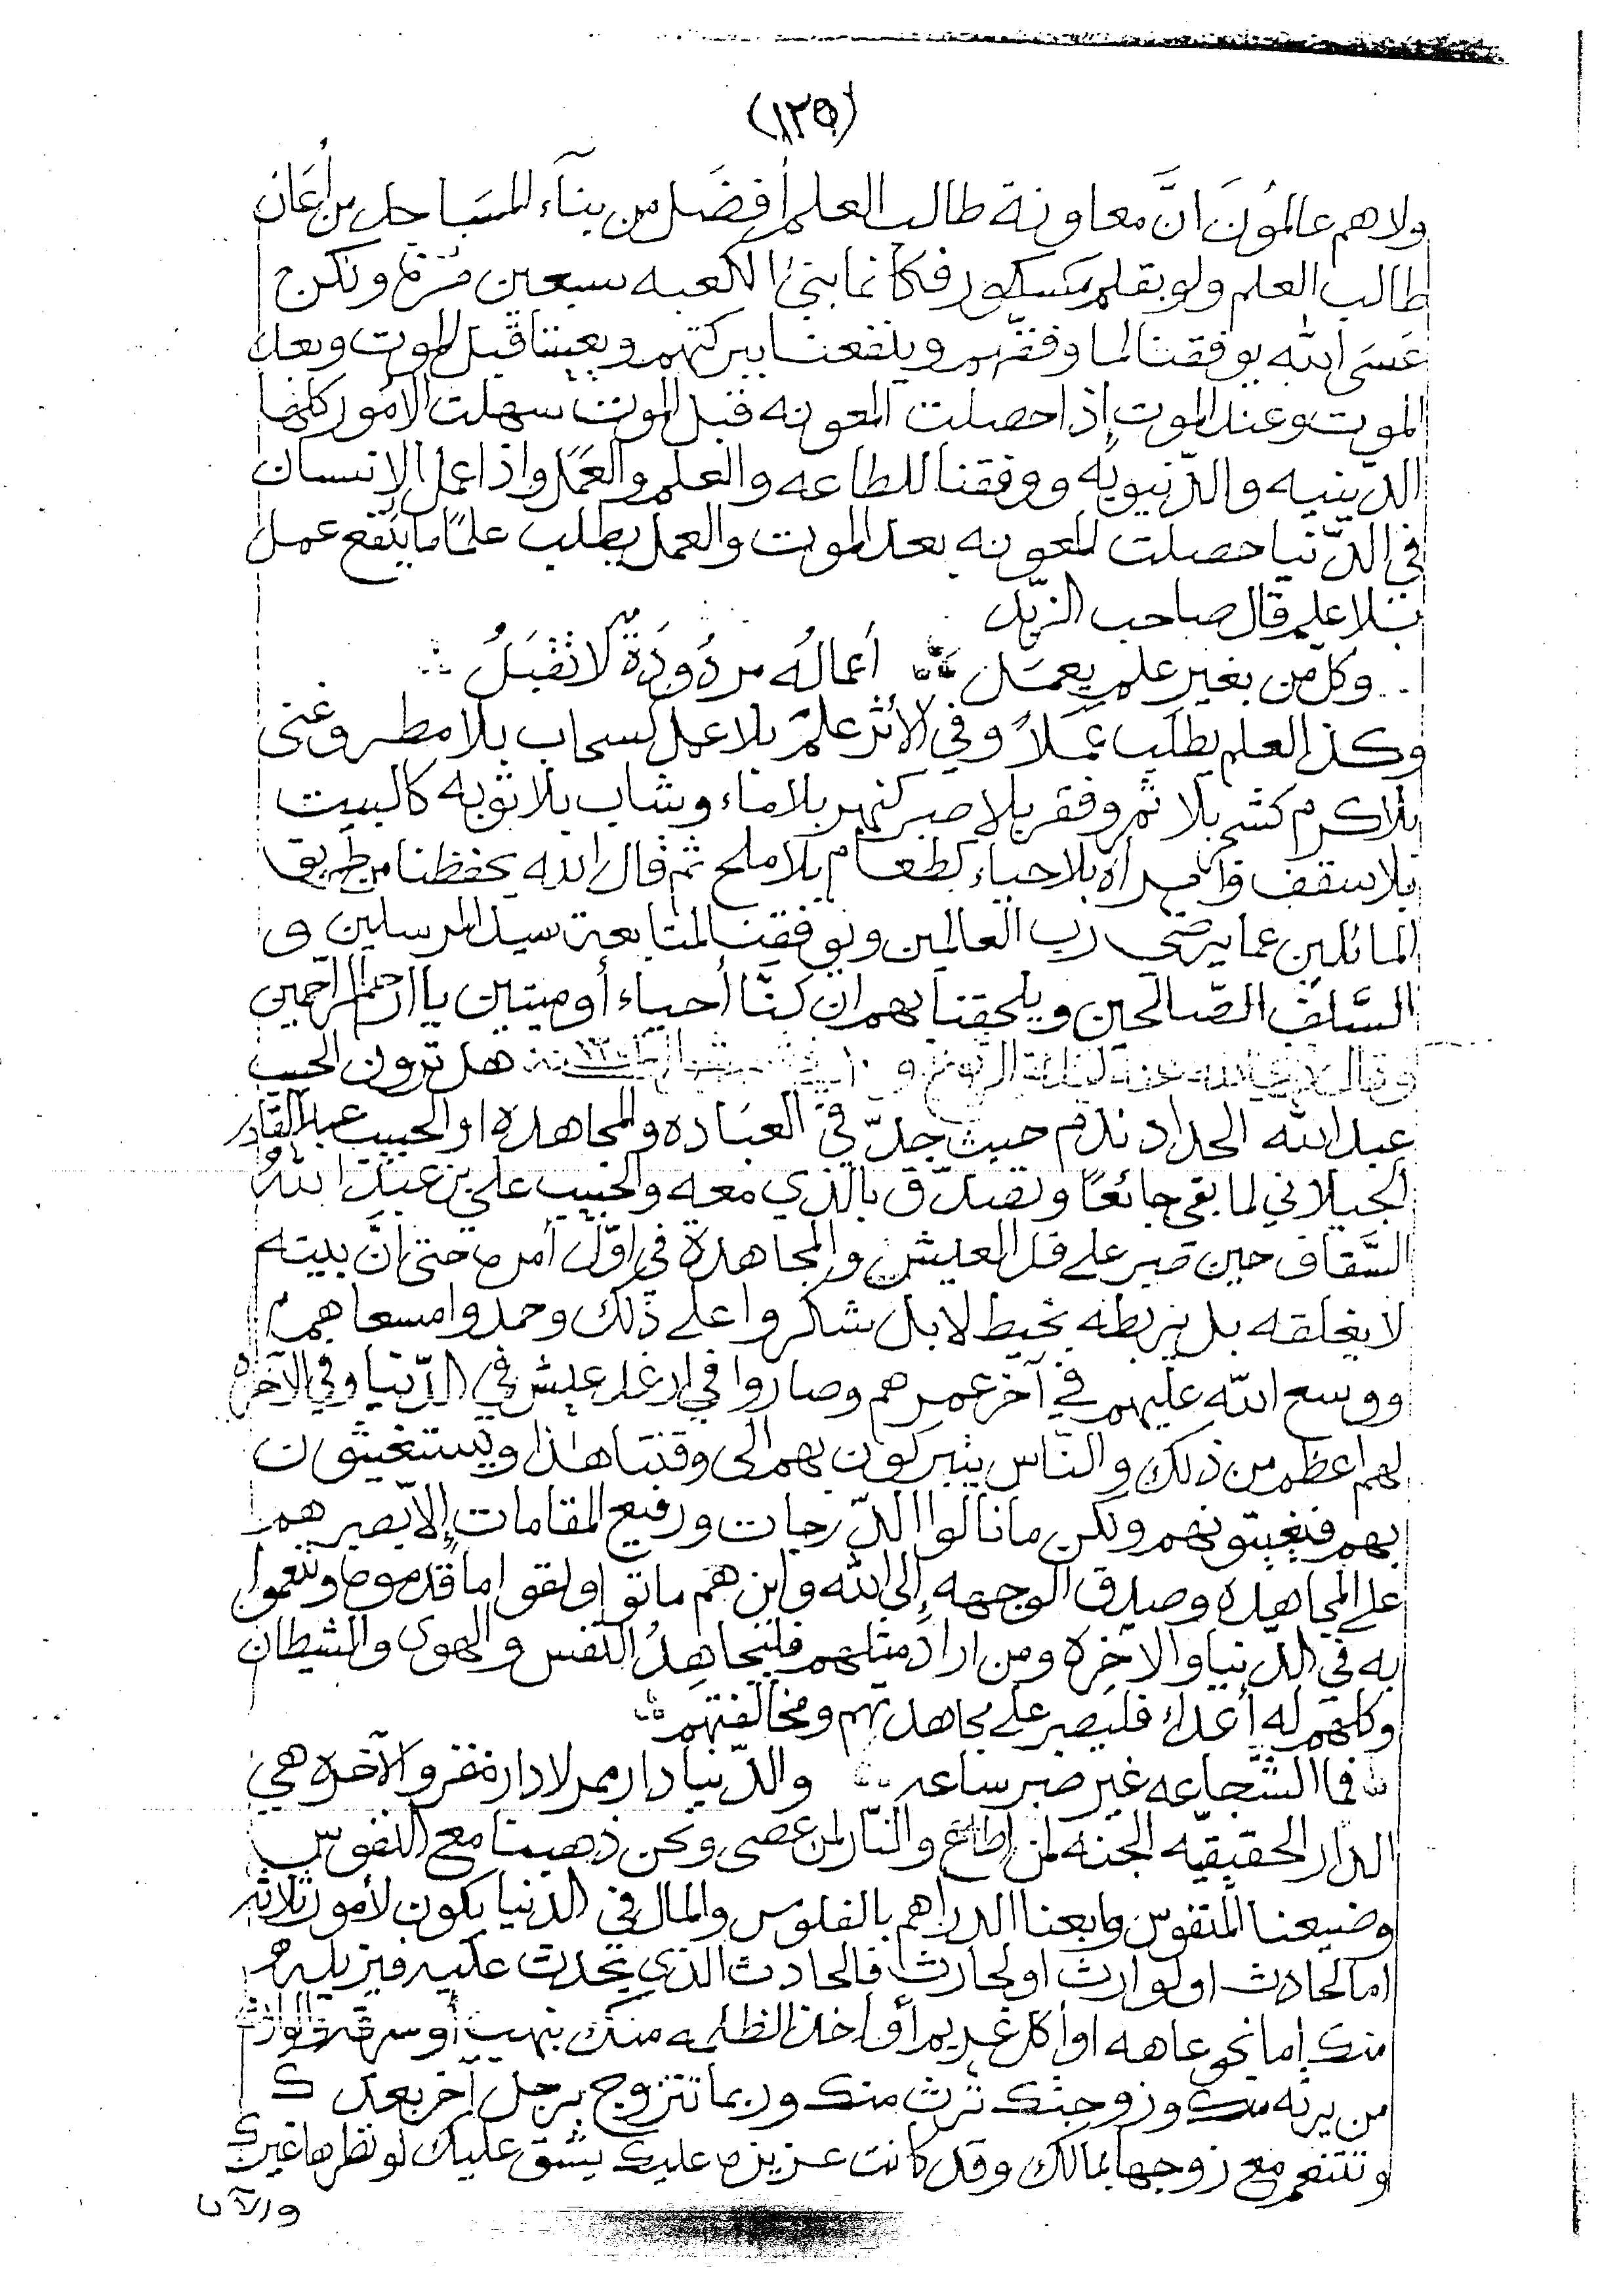 (١٢٥)
ولاهم عالمُونَ انَّ معاونة طالب العلم أفضَل من بنآء المسَاجد من أعَان
طالب العلم ولو بقلم مكسور فكأنما بنىٰ الكعبه سبعين مَرَّة ونحن
عَسَى الله يوفقنا لما وفقهم وينفعنا ببركتهم ويعيننا قبل الموت وبعد
الموت وعند الموت إذا حصلت المعونه قبل الموت سهلت الأمور كلها
الدّينيه والدّنيويه ووفقنا للطاعه والعلم والعَمَل واذا عمل الإنسان
في الدّنيا حصلت المعونه بعد الموت والعمل يطلب علمًا ما يَنفع عمل
بلا علم قال صاحب الزبد
وكل من بغير علم يعمَل ∴ أعماله مردُودَةٌ لا تُقبَلُ ∴
وكذا العلم يطلَب عَمَلاً وفي الأثر علمٌ بلا عمل كسحاب بلا مطر وغنى
بلا كرم كشجر بلا ثمر وفقر بلا صبر كنهر بلا ماء وشاب بلا توبه كالبيت
بلا سقف وامرأه بلا حياء كطعام بلا ملح ثم قال الله يحفظنا من طريق
المائلين عما يرضى رب العالمين ويوفقنا لمتابعة سيد المرسلين و
السَّلَف الصّالحين ويلحقنا بهم ان كنَّا أحياء أو ميتين يا ارحم الراحمين
وقال رضي الله عنه ليلة الربوع هل ترون الحبيب
عبد الله الحداد ندم حيث جدّ في العبَاده والمجاهدة او الحبيب عبد القادر
الجيلاني لما بقي جائعًا وتصدّق بالذي معه والحبيب علي بن عبد اللهُ
السَّقاف حين صبر على قل المعيش والمجاهدة في اوّل أمره حتى انَّ بيته
لا يغلقه بل يربطه بخيط لا بل شكروا على ذٰلك وحمدوا مسعاهم
ووسع الله عليهم في آخر عمرهم وصاروا في ارغد عيش في الدّنيا وفي الآخره
لهم اعظم من ذلك والناس يتبركون بهم الى وقتنا هٰذا ويستغيثون
بهم فيغيثونهم ولكن ما نالوا الدّرجات ورفيع المقامات إلاّ بصبرهم
على المجاهده وصدق الوجهه إلى الله واين هم ماتوا ولقوا ما قدموه وتنعموا
به في الدّنيا والآخره ومن اراد مثلهم فليجاهِدُ النفس والهوى والشيطان
وكلهم له أعداء فليصبر على مجاهدتهم ومخالفتهم ∴
∴ فما الشَّجاعه غير صبر ساعه ∴ والدّنيا دار ممر لا دار مقر والآخره هي
الدار الحقيقيّه الجنه لمن اطاع والنّار لمن عصى ونحن ذهبنا مع النفوس
وضيعنا المنفوس وابعنا الدراهم بالفلوس والمال في الدنيا يكون لأمور ثلاثه
اما لحادث او لوارث او لحارث فالحادث الذي يحدث عليه فيزيلهُ
منك إما بنحو عاهه او أكل غريم أو اخذ الظلمه منك بنهب أو سرقة والوارث
من يرثه منك وزوجتك ترث منك وربما تتزوج برجل آخر بعدك
وتتنعم مع زوجها بمالك وقد كانت عزيزه عليك يشق عليك لو نظرها غيرك
والآن